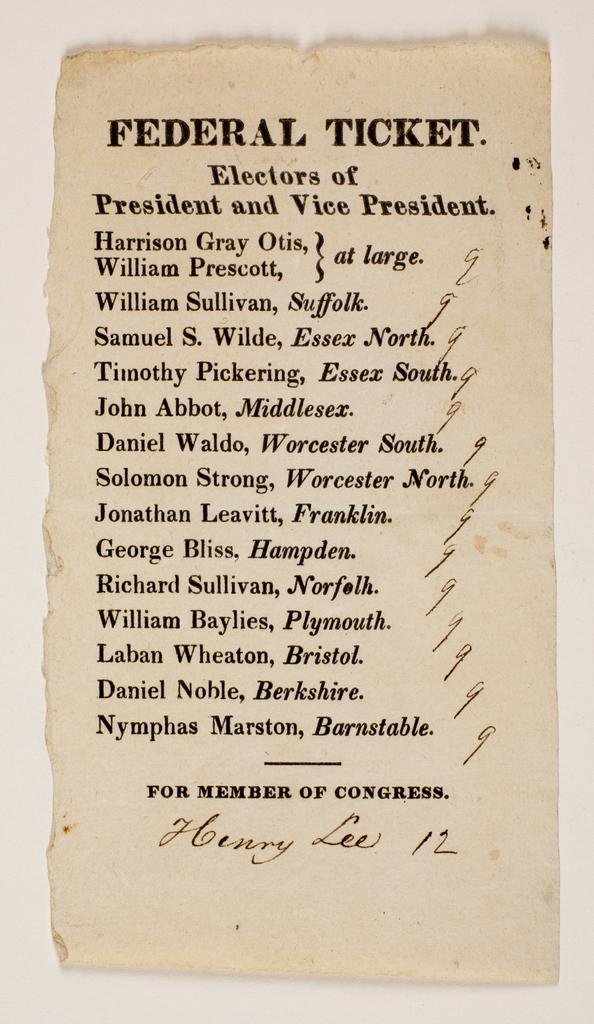 FEDERAL TICKET.
Electors of
President and Vice President.
Harrison Gray Otis, } at large. 9
William Prescott,
William Sullivan, Suffolk. 9
Samuel S. Wilde, Essex North. 9
Timothy Pickering, Essex South. 9
John Abbot, Middlesex. 9
Daniel Waldo, Worcester South. 9
Solomon Strong, Worcester North. 9
Jonathan Leavitt, Franklin. 9
George Bliss, Hampden. 9
Richard Sullivan, Norfolk. 9
William Baylies, Plymouth. 9
Laban Wheaton, Bristol. 9
Daniel Noble, Berkshire. 9
Nymphas Marston, Barnstable. 9
FOR MEMBER OF CONGRESS.
Henry Lee 12